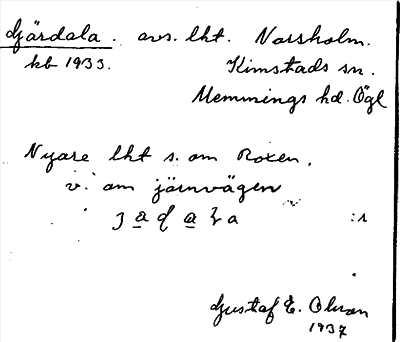 Gjärdala. avs. lht. Norsholm.
kb 1933. Kimstads sn.
Memmings hd. Ögl
Nyare lht s. om Roxen,
v. om järnvägen
:1
Gustaf E. Olsson
1937